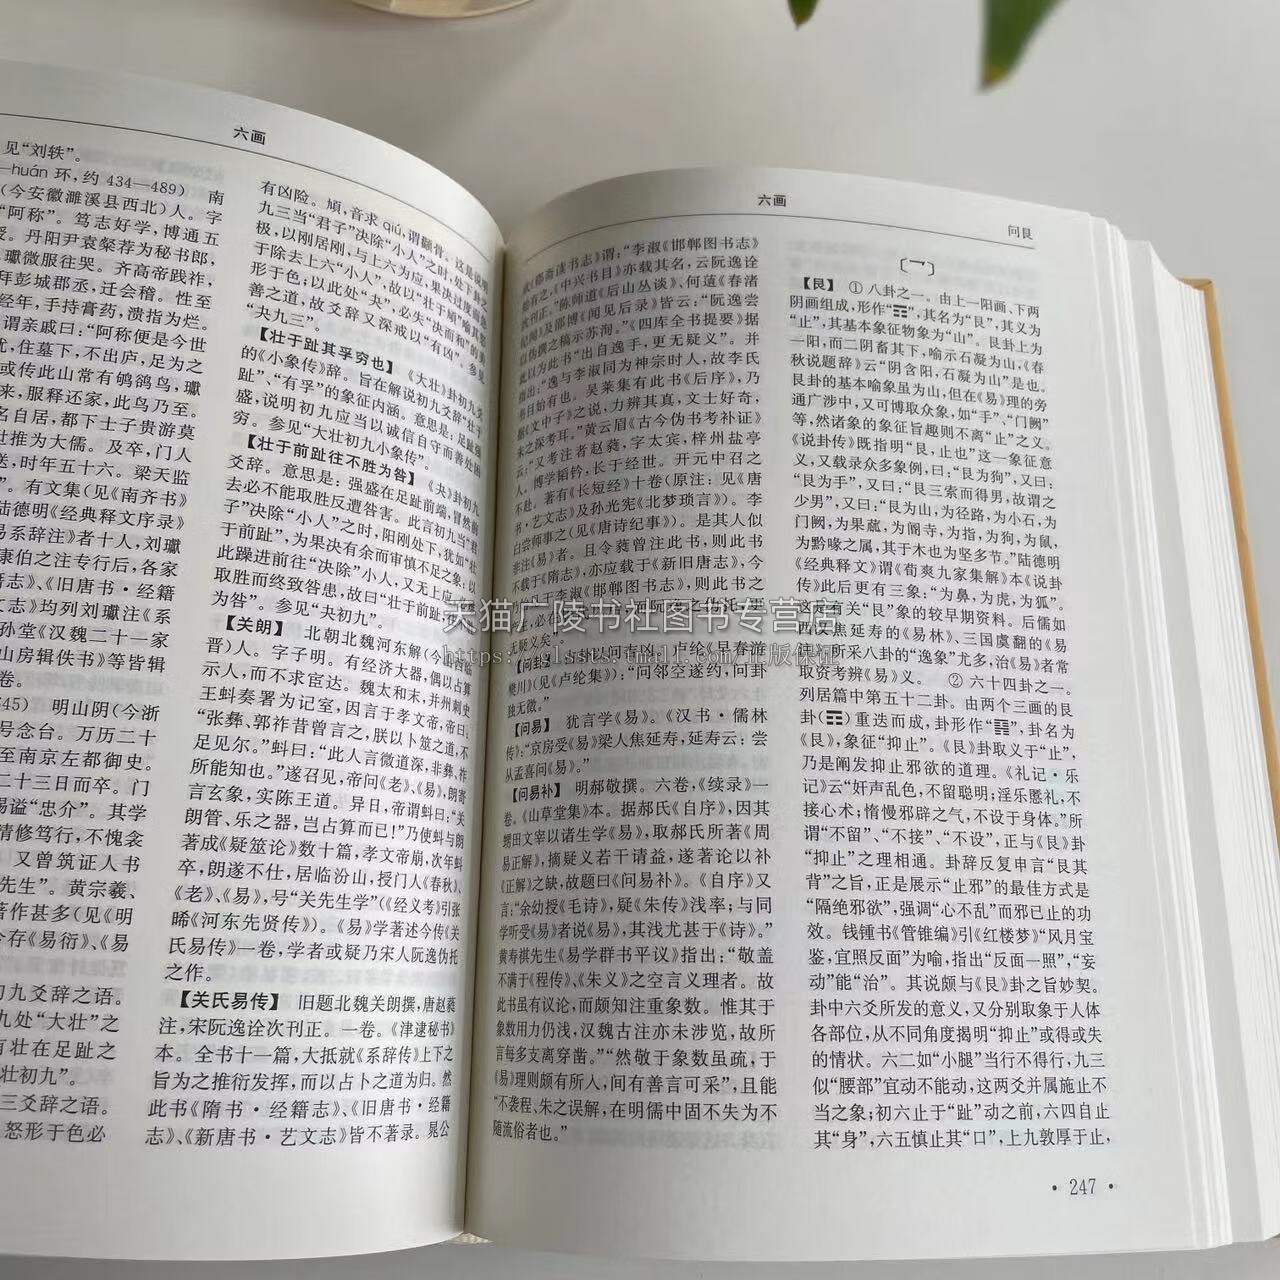 六画
见“刘轶”。
—huán 环，约 434—489） 南
（今安徽濉溪县西北）人。字
“阿称”。笃志好学，博通五
受。丹阳尹袁粲荐为秘书郎，
瓛微服往哭。齐高帝践祚，
拜彭城郡丞，迁会稽。性至
经年，手持膏药，溃指为烂。
谓亲戚曰：“阿称便是今世
忧，住墓下，不出庐，足为之
或传此山常有鸲鹆鸟，瓛
来，服释还家，此鸟乃至。
名自居，都下士子贵游莫
世推为大儒。及卒，门人
送，时年五十六。梁天监
”。有文集（见《南齐书》
陆德明《经典释文序录》
易系辞注》者十人，刘瓛
康伯之注专行后，各家
志》、《旧唐书·经籍
文志》均列刘瓛注《系
孙堂《汉魏二十一家
山房辑佚书》等皆辑
卷。
45） 明山阴（今浙
号念台。万历二十
至南京左都御史。
二十三日而卒。门
易谥“忠介”。其学
清修笃行，不愧衾
又曾筑证人书
先生”。黄宗羲、
著作甚多（见《明
今存《易衍》、《易
初九爻辞之语。
九处“大壮”之
有壮在足趾之
壮初九”。
三爻辞之语。
怒形于色必
有凶险。頄，音求 qiú，谓颧骨。这是说明
九三当“君子”决除“小人”之时，处下卦之
极，以刚居刚，与上六为应，果决过度而急
于除去上六“小人”，故以“壮于頄”喻其怒
形于色；以此处“夬”，必失“决而和”的美
善之道，故爻辞又深戒以“有凶”。参见
“夬九三”。
【壮于趾其孚穷也】 《大壮》卦初九爻
的《小象传》辞。旨在解说初九爻辞“壮于
趾”、“有孚”的象征内涵。意思是：足趾强
盛，说明初九应当以诚信自守而善处困
穷。参见“大壮初九小象传”。
【壮于前趾往不胜为咎】 《夬》卦初九
爻辞。意思是：强盛在足趾前端，冒然前
去必不能取胜反遭咎害。此言初九当“君
子”决除“小人”之时，阳刚处下，犹如“壮
于前趾”，为果决有余而审慎不足之象；以
此躁进前往“决除”小人，又无上应，
取胜而终致咎患，故曰“壮于前趾，
为咎”。参见“夬初九”。
【关朗】 北朝北魏河东解（今山西临
晋）人。字子明。有经济大器，偶以占算
示人，而不求宦达。魏太和末，并州刺史
王蚪奏署为记室，因言于孝文帝，帝曰：
“张彝、郭祚昔曾言之，朕以卜筮之道，不
足见尔。”蚪曰：“此人言微道深，非彝、祚
所能知也。”遂召见，帝问《老》、《易》，朗寄
言玄象，实陈王道。异日，帝谓蚪曰：“关
朗管、乐之器，岂占算而已！”乃使蚪与朗
著成《疑筮论》数十篇，孝文帝崩，次年蚪
卒，朗遂不仕，居临汾山，授门人《春秋》、
《老》、《易》，号“关先生学”（《经义考》引张
晞《河东先贤传》）。《易》学著述今传《关
氏易传》一卷，学者或疑乃宋人阮逸伪托
之作。
【关氏易传】 旧题北魏关朗撰，唐赵蕤
注，宋阮逸诠次刊正。一卷。《津逮秘书》
本。全书十一篇，大抵就《系辞传》上下之
旨为之推衍发挥，而以占卜之道为归。然
此书《隋书·经籍志》、《旧唐书·经籍
志》、《新唐书·艺文志》皆不著录。晁公
六画
问艮
武《郡斋读书志》谓：“李淑《邯郸图书志》
始有之，《中兴书目》亦载其名，云阮逸诠
次刊正。”陈师道《后山丛谈》、何薳《春渚
纪闻》及邵博《闻见后录》皆云：“阮逸尝
以伪撰之稿示苏洵。”《四库全书提要》据
此以为此书“出自逸手，更无疑义”。并
指出：“逸与李淑同为神宗时人，故李氏
书目始有也。吴莱集有此书《后序》，乃
据《文中子》之说，力辨其真，文士好奇，
未之深考耳。”黄云眉《古今伪书考补证》
云：“又考注者赵蕤，字太宾，梓州盐亭
人。博学韬钤，长于经世。开元中召之
不赴。著有《长短经》十卷（原注：见《唐
书·艺文志》及孙光宪《北梦琐言》）。李
白尝师事之（见《唐诗纪事》）。是其人似
非注《易》者。且令蕤曾注此书，则此书
不载于《隋志》，亦应载于《新旧唐志》，今
于李淑《邯郸图书志》，则此书之
无疑义矣。
【问卦】 以问吉凶。卢纶《早春游
樊川》（见《卢纶集》）：“问邻空遂约，问卦
独无徵。”
【问易】 犹言学《易》。《汉书·儒林
传》：“京房受《易》梁人焦延寿，延寿云：尝
从孟喜问《易》。”
【问易补】 明郝敬撰。六卷，《续录》一
卷。《山草堂集》本。据郝氏《自序》，因其
甥田文宰以诸生学《易》，取郝氏所著《周
易正解》，摘疑义若干请益，遂著论以补
《正解》之缺，故题曰《问易补》。《自序》又
言：“余幼授《毛诗》，疑《朱传》浅率；与同
学听受《易》者说《易》，其浅尤甚于《诗》。”
黄寿祺先生《易学群书平议》指出：“敬盖
不满于《程传》、《朱义》之空言义理者。故
此书虽有议论，而颇知注重象数。惟其于
象数用力仍浅，汉魏古注亦未涉览，故所
言每多支离穿凿。”“然敬于象数虽疏，于
《易》理则颇有所入，间有善言可采”，且能
“不袭程、朱之误解，在明儒中固不失为不
随流俗者也。”
〔一〕
【艮】 ①八卦之一。由上一阳画、下两
阴画组成，形作“☶”，其名为“艮”，其义为
“止”，其基本象征物象为“山”。艮卦上为
一阳，而二阴畜其下，喻示石凝为山，《春
秋说题辞》云“阴含阳，石凝为山”是也。
艮卦的基本喻象虽为山，但在《易》理的旁
通广涉中，又可博取众象，如“手”、“门阙”
等，然诸象的象征旨趣则不离“止”之义。
《说卦传》既指明“艮，止也”这一象征意
义，又载录众多象例，曰：“艮为狗”，又曰：
“艮为手”，又曰：“艮三索而得男，故谓之
少男”，又曰：“艮为山，为径路，为小石，为
门阙，为果蓏，为阍寺，为指，为狗，为鼠，
为黔喙之属，其于木也为坚多节。”陆德明
《经典释文》谓《荀爽九家集解》本《说卦
传》此后更有三象：“为鼻，为虎，为狐。”
这是有关“艮”象的较早期资料。后儒如
西汉焦延寿的《易林》、三国虞翻的《易
注》，所采八卦的“逸象”尤多，治《易》者常
取资考辨《易》义。 ②六十四卦之一。
列居篇中第五十二卦。由两个三画的艮
卦（☶）重迭而成，卦形作“䷳”，卦名为
《艮》，象征“抑止”。《艮》卦取义于“止”，
乃是阐发抑止邪欲的道理。《礼记·乐
记》云“奸声乱色，不留聪明；淫乐慝礼，不
接心术；惰慢邪辟之气，不设于身体。”所
谓“不留”、“不接”、“不设”，正与《艮》卦
“抑止”之理相通。卦辞反复申言“艮其
背”之旨，正是展示“止邪”的最佳方式是
“隔绝邪欲”，强调“心不乱”而邪已止的功
效。钱锺书《管锥编》引《红楼梦》“风月宝
鉴，宜照反面”为喻，指出“反面一照”，“妄
动”能“治”。其说颇与《艮》卦之旨妙契。
卦中六爻所发的意义，又分别取象于人体
各部位，从不同角度揭明“抑止”或得或失
的情状。六二如“小腿”当行不得行，九三
似“腰部”宜动不能动，这两爻并属施止不
当之象；初六止于“趾”动之前，六四自止
其“身”，六五慎止其“口”，上九敦厚于止，
· 247 ·
天猫广陵书社图书专营店